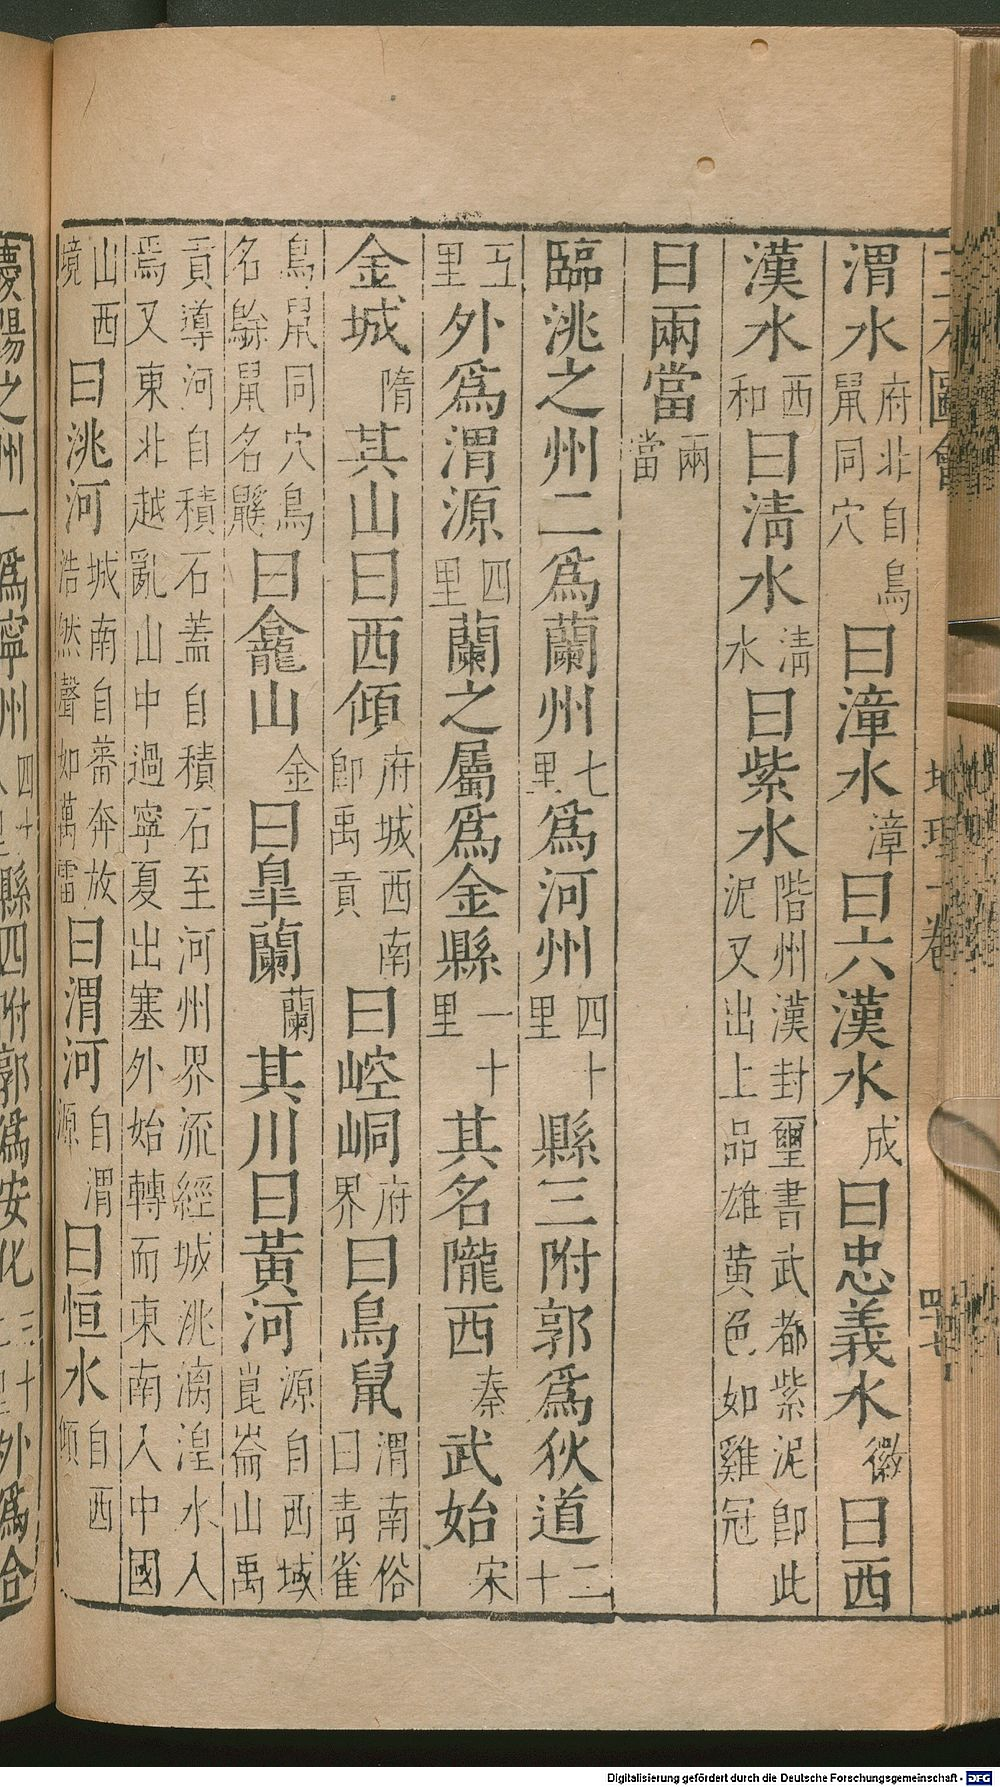 渭水府北自鳥鼠同穴曰漳水漳曰六漢水成曰忠義水徽曰西
漢水西和曰清水清水曰紫水階州漢封璽書武都紫泥即此泥又出上品雄黄色如雞冠
曰兩當兩當
臨洮之州二爲蘭州七里爲河州四十里縣三附郭爲狄道二十
五里外爲渭源四里蘭之屬爲金縣一十里其名隴西秦武始宋
金城隋其山曰西傾府城西南即禹貢曰崆峒府界曰鳥鼠渭南俗曰青雀
鳥鼠同穴鳥名鵌鼠名鼵曰龕山金曰皐蘭蘭其川曰黃河源自西域崑崙山禹
貢導河自積石蓋自積石至河州界流經城洮漓湟水入焉又東北越亂山中過寧夏出塞外始轉而東南入中國
山西境曰洮河城南自蕃奔放浩然聲如萬雷曰渭河自渭源曰恒水自西傾
慶陽之州一爲寧州縣四附郭爲安化外爲合
地理一卷
四十七
Digitalisierung gefördert durch die Deutsche Forschungsgemeinschaft - DFG